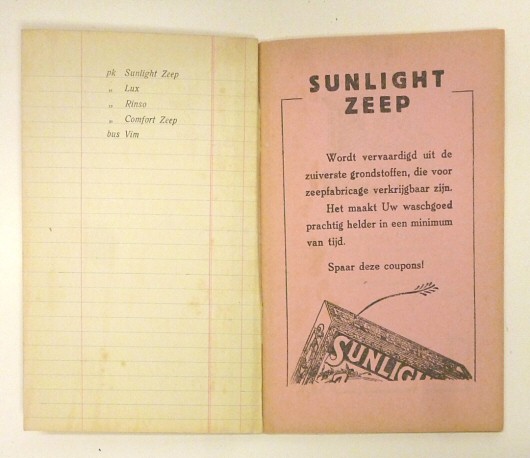 pk Sunlight Zeep
„ Lux
„ Rinso
„ Comfort Zeep
bus Vim
SUNLIGHT
ZEEP
Wordt vervaardigd uit de
zuiverste grondstoffen, die voor
zeepfabricage verkrijgbaar zijn.
Het maakt Uw waschgoed
prachtig helder in een minimum
van tijd.
Spaar deze coupons!
SUNLIG